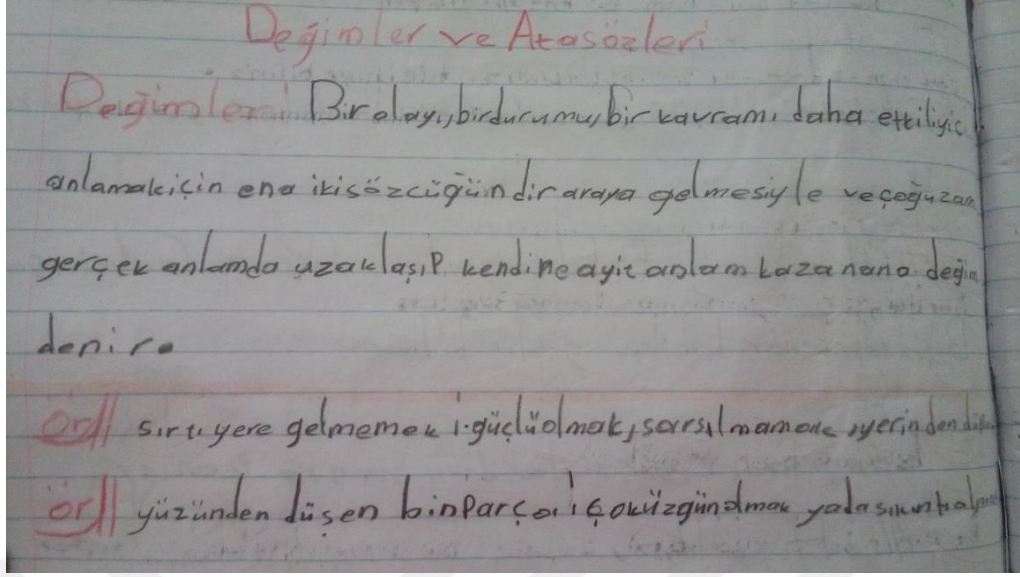 Değimler ve Atasözleri
Değimler: Bir olayı, birdurumu, bir kavramı daha etkiliyici
anlamakiçin ena ikisözcüğün dir araya gelmesiyle veçoğuzam
gerçek anlamda uzaklaşıp kendine ayit anlam kazanana değim
denir.
örll sırtı yere gelmemek : güçlüolmak, sarsılmamak, yerinden
örll yüzünden düşen binparça : çoküzgünolmak yada sıkıntıolmak